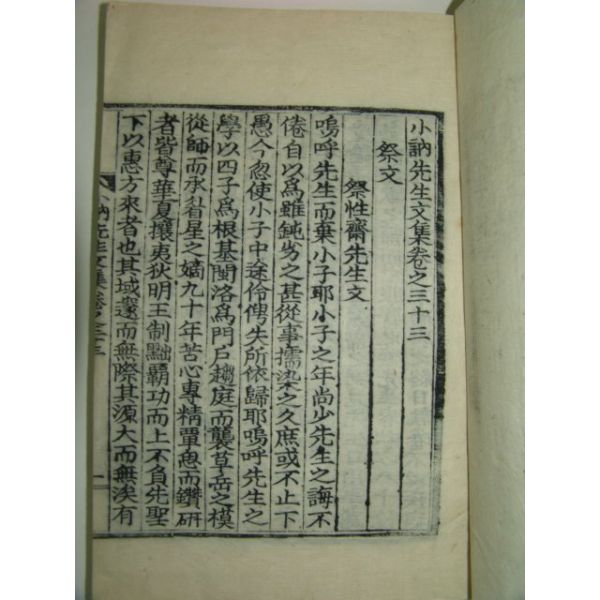 小訥先生文集卷之三十三
祭文
祭性齋先生文
嗚呼先生而棄小子耶小子之年尚少先生之誨不
倦自以爲雖鈍劣之甚從事擩染之久庶或不止下
愚今忽使小子中途伶俜失所依歸耶嗚呼先生之
學以四子爲根基閩洛爲門戶趨庭而襲草岳之模
從師而承省星之嫡九十年苦心專精覃思而鑽硏
者皆尊華夏攘夷狄明王制黜覇功而上不負先聖
下以惠方來者也其域邃而無際其源大而無涘有
小訥先生文集卷之三十三
一